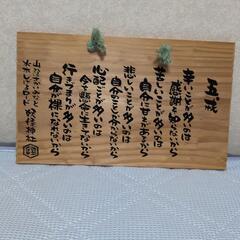 五戒
辛いことが多いのは
感謝を知らないから
苦しいことが多いのは
自分に甘えがあるから
悲しいことが多いのは
自分のことしか分からないから
心配ことが多いのは
今を懸命に生きていないから
行きづまりが多いのは
自分が裸になれないから